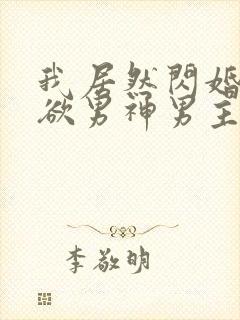 我居然閃婚
欲男神男主
李敬明